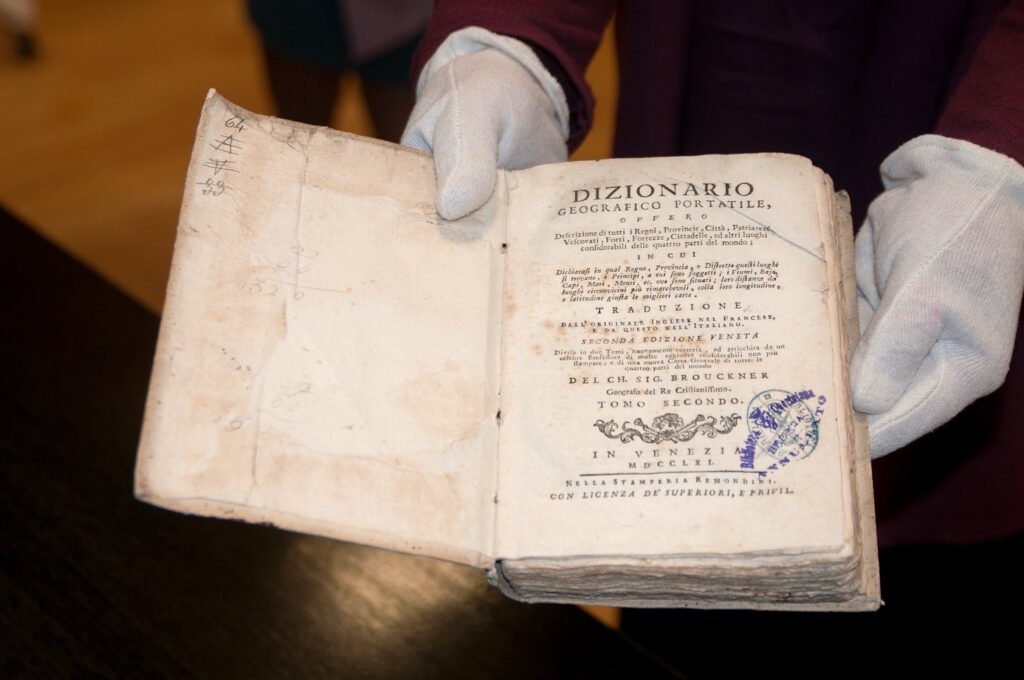 64
DIZIONARIO
GEOGRAFICO PORTATILE,
OVVERO
Descrizione di tutti i Regni, Provincie, Città, Patriarcati,
Vescovati, Forti, Fortezze, Cittadelle, ed altri luoghi
considerabili delle quattro parti del mondo;
IN CUI
Dichiarasi in qual Regno, Provincia, e Distretto questi luoghi
si trovano, i Principi, a cui sono soggetti; i Fiumi, Baje,
Capi, Mari, Monti, ec. ove sono situati; loro distanza da'
luoghi circonvicini più rimarchevoli, colla loro longitudine,
e latitudine giusta le migliori carte.
TRADUZIONE
DALL'ORIGINALE INGLESE NEL FRANCESE,
E DA QUESTO NELL'ITALIANO.
SECONDA EDIZIONE VENETA
Divisa in due Tomi, nuovamente corretta, ed arricchita da un
celebre Professore di molte aggiunte considerabili non più
stampate; e di una nuova Carta Generale di tutte le
quattro parti del mondo
DEL CH. SIG. BROUCKNER
Geografo del Re Cristianissimo.
TOMO SECONDO.
IN VENEZIA
MDCCLXI.
NELLA STAMPERIA REMONDINI.
CON LICENZA DE' SUPERIORI, E PRIVIL.